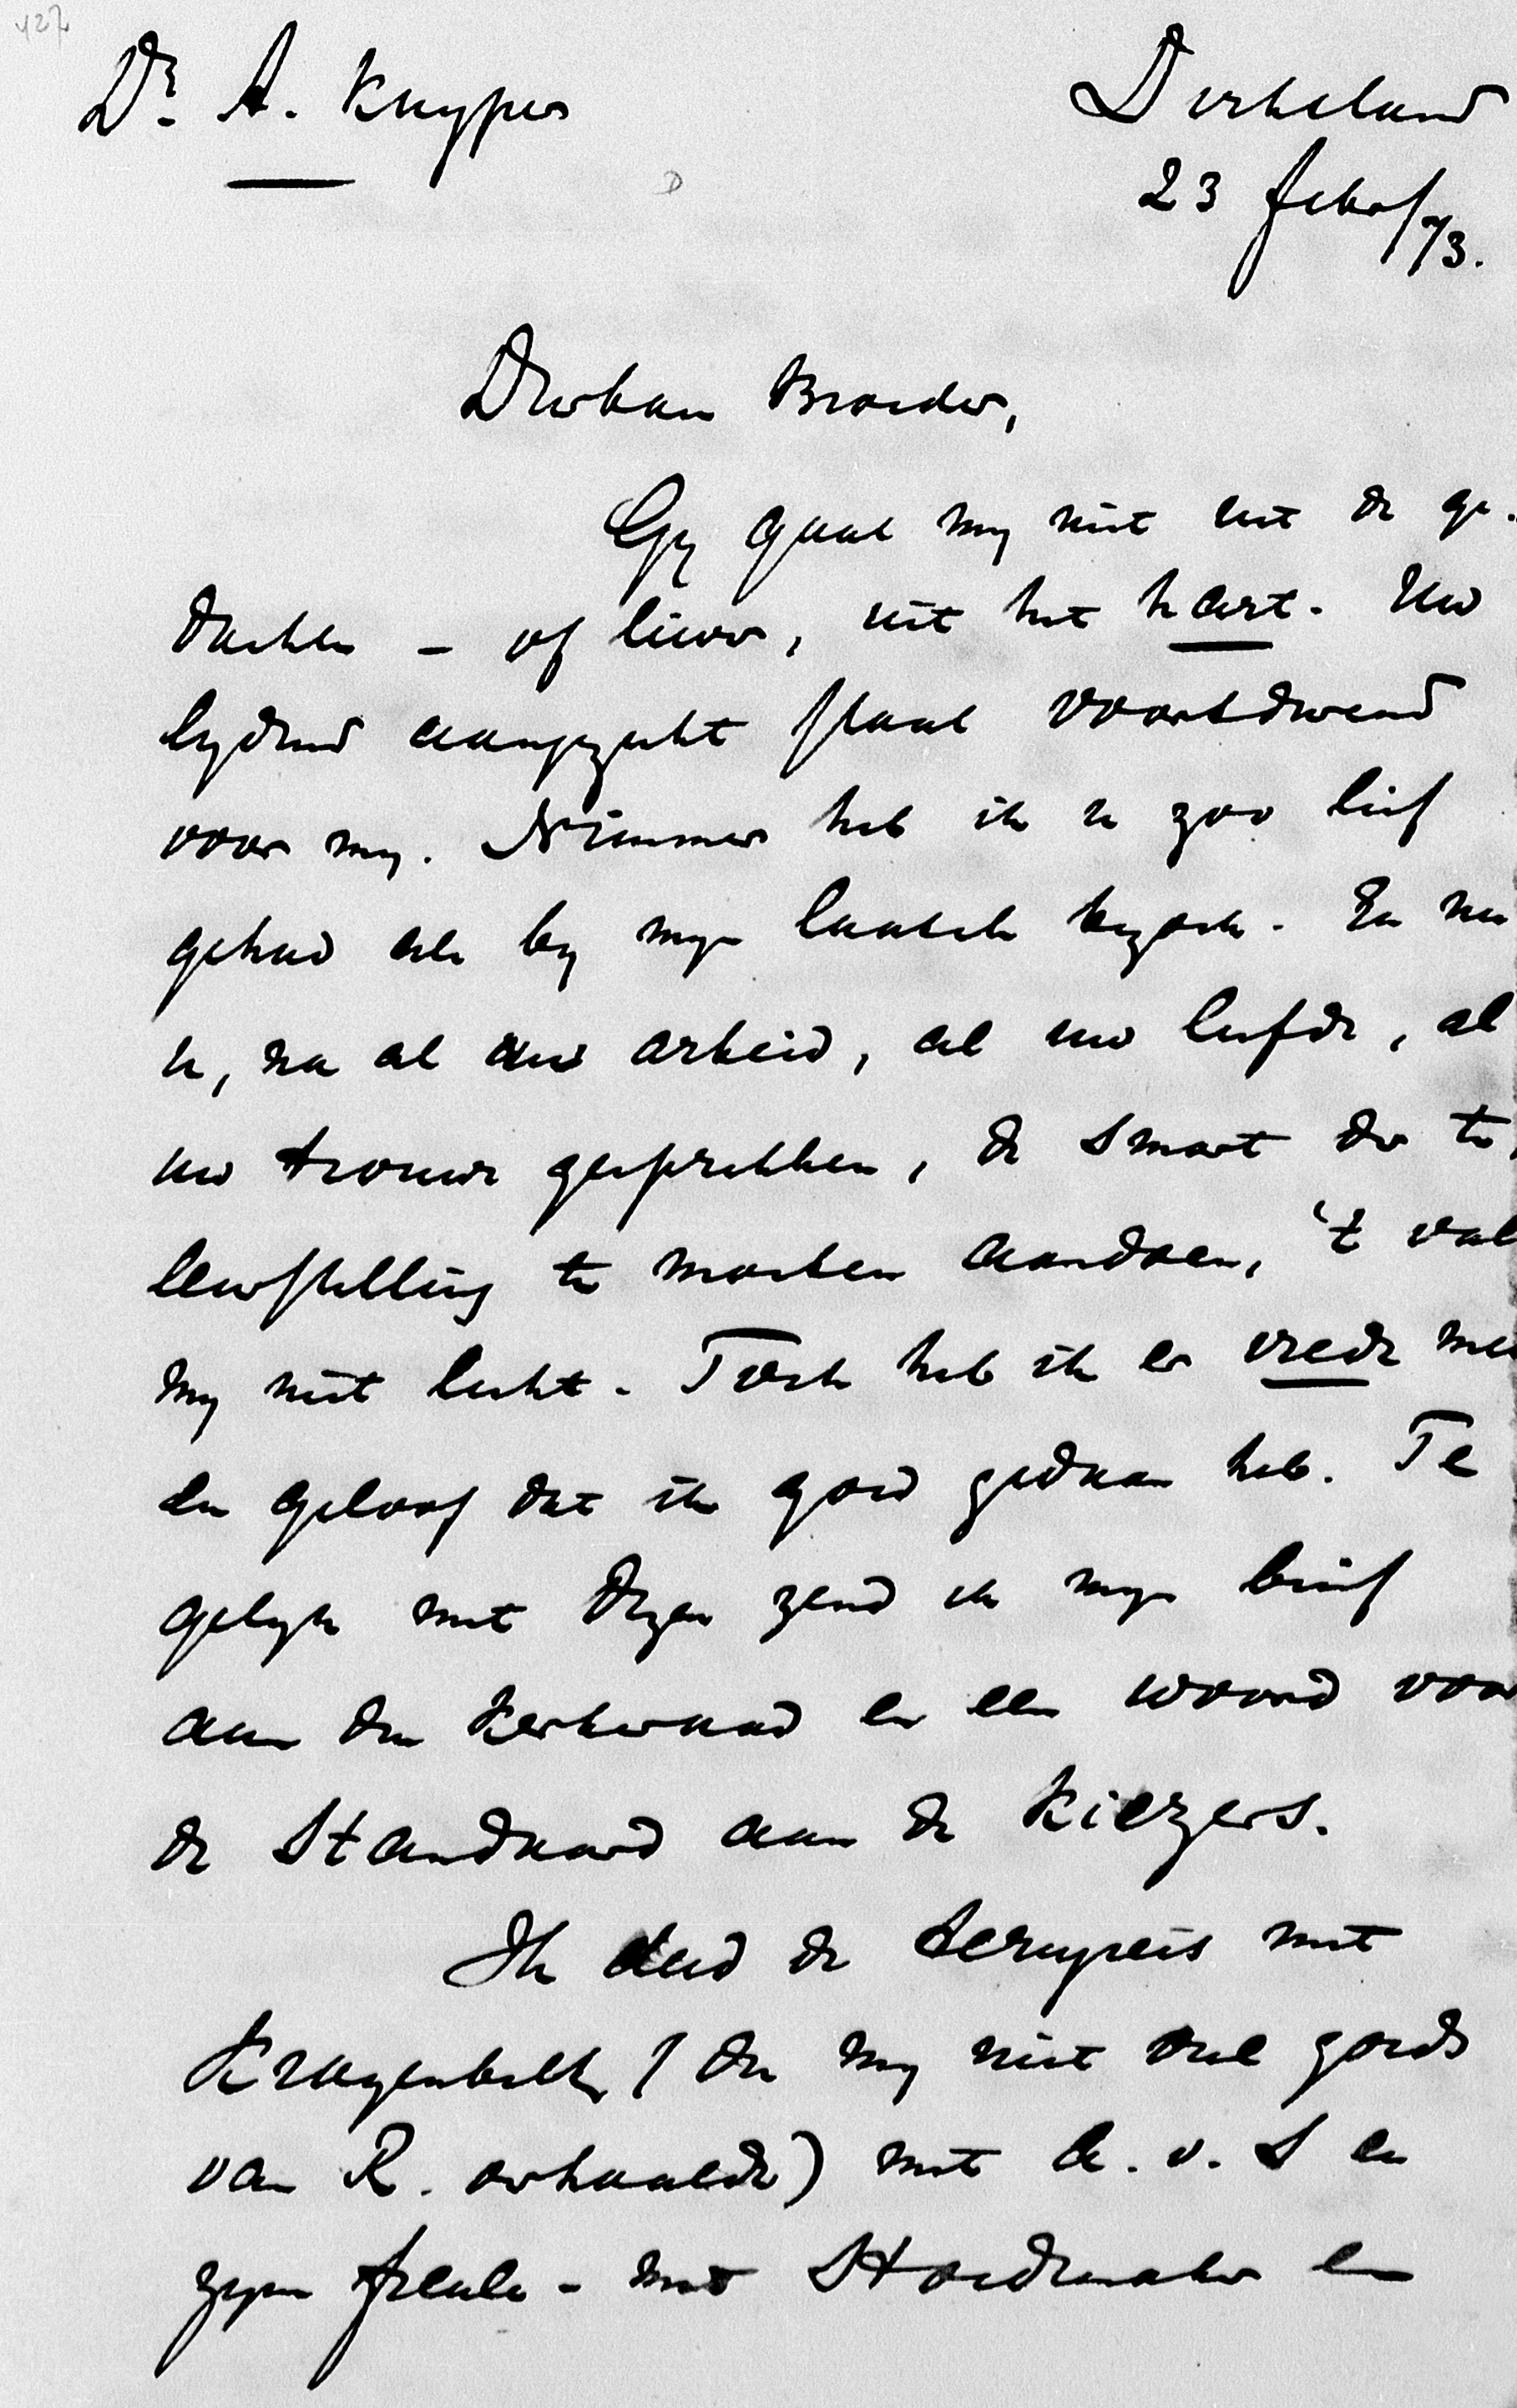 427
Dr. A. Kuyper
Dirksland
23 Febr/73.
Dierbare Broeder,
Gy gaat my niet uit de ge-
dachte – of liever, uit het hart. Uw
lydend aangezicht staat voortdurend
voor my. Nimmer heb ik u zoo lief
gehad als by myn laatste bezoek. En nu
u, na al uw arbeid, al uw liefde, al
uw trouwe gesprekken, de smart der te
leurstelling te moeten aandoen, 't valt
my niet licht. Toch heb ik er vrede mee
en geloof dat ik goed gedaan heb. Te
gelyk met dezen zend ik myn brief
aan den Kerkeraad en een woord voor
de Standaard aan de Kiezers.
Ik deed de terugreis met
(die my niet veel goeds
van R. verhaalde) met d. v. S en
zyn freule – met Hoedemaker en